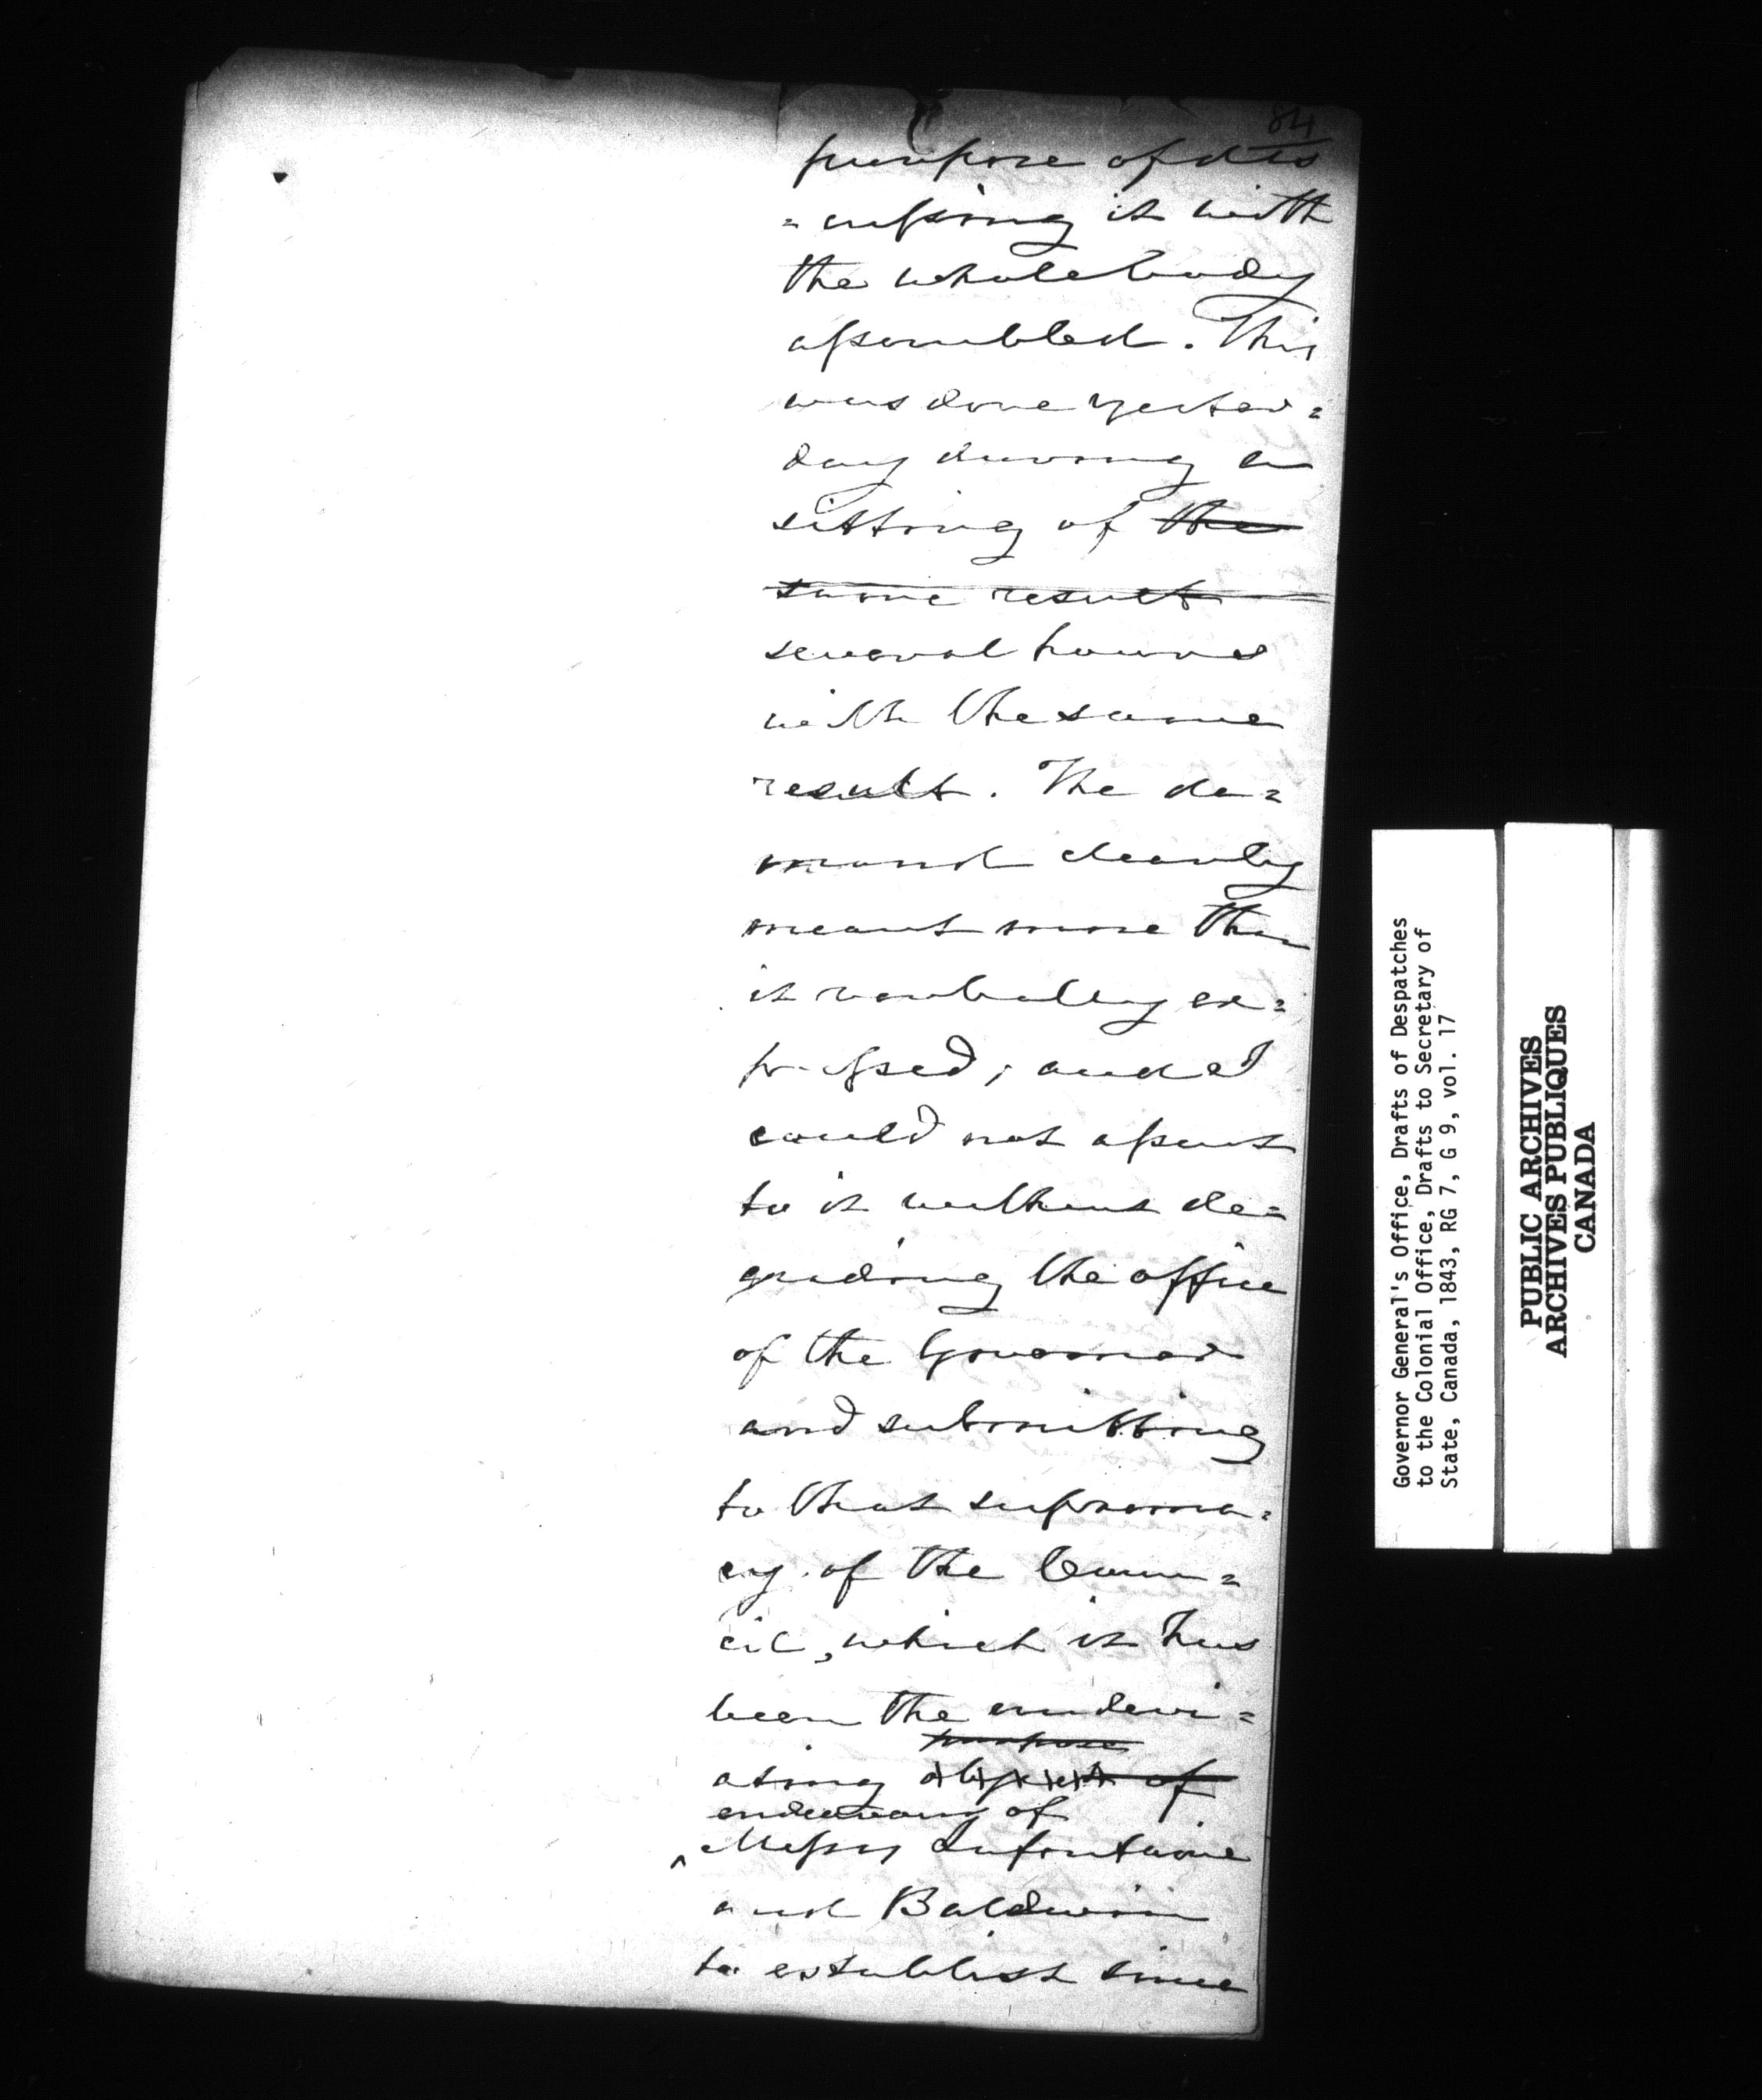 84
purpose of dis
=cussing it with
the whole body
assembled. This
was done yester=
day during a
sitting of the
same result
several hours
with the same
result. The de=
mand clearly
meant more than
it verbally ex=
pressed; and I
could not assent
to it without de=
grading the office
of the Governor
and submitting
to that suprema=
cy of the Coun=
cil, which it has
been the undevi=
purpose
ating object of
endeavour of
Messrs Lafontaine
and Baldwin
to establish since
Governor General's Office, Drafts of Despatches
to the Colonial Office, Drafts to Secretary of
State, Canada, 1843, RG 7, G 9, vol. 17
PUBLIC ARCHIVES
ARCHIVES PUBLIQUES
CANADA